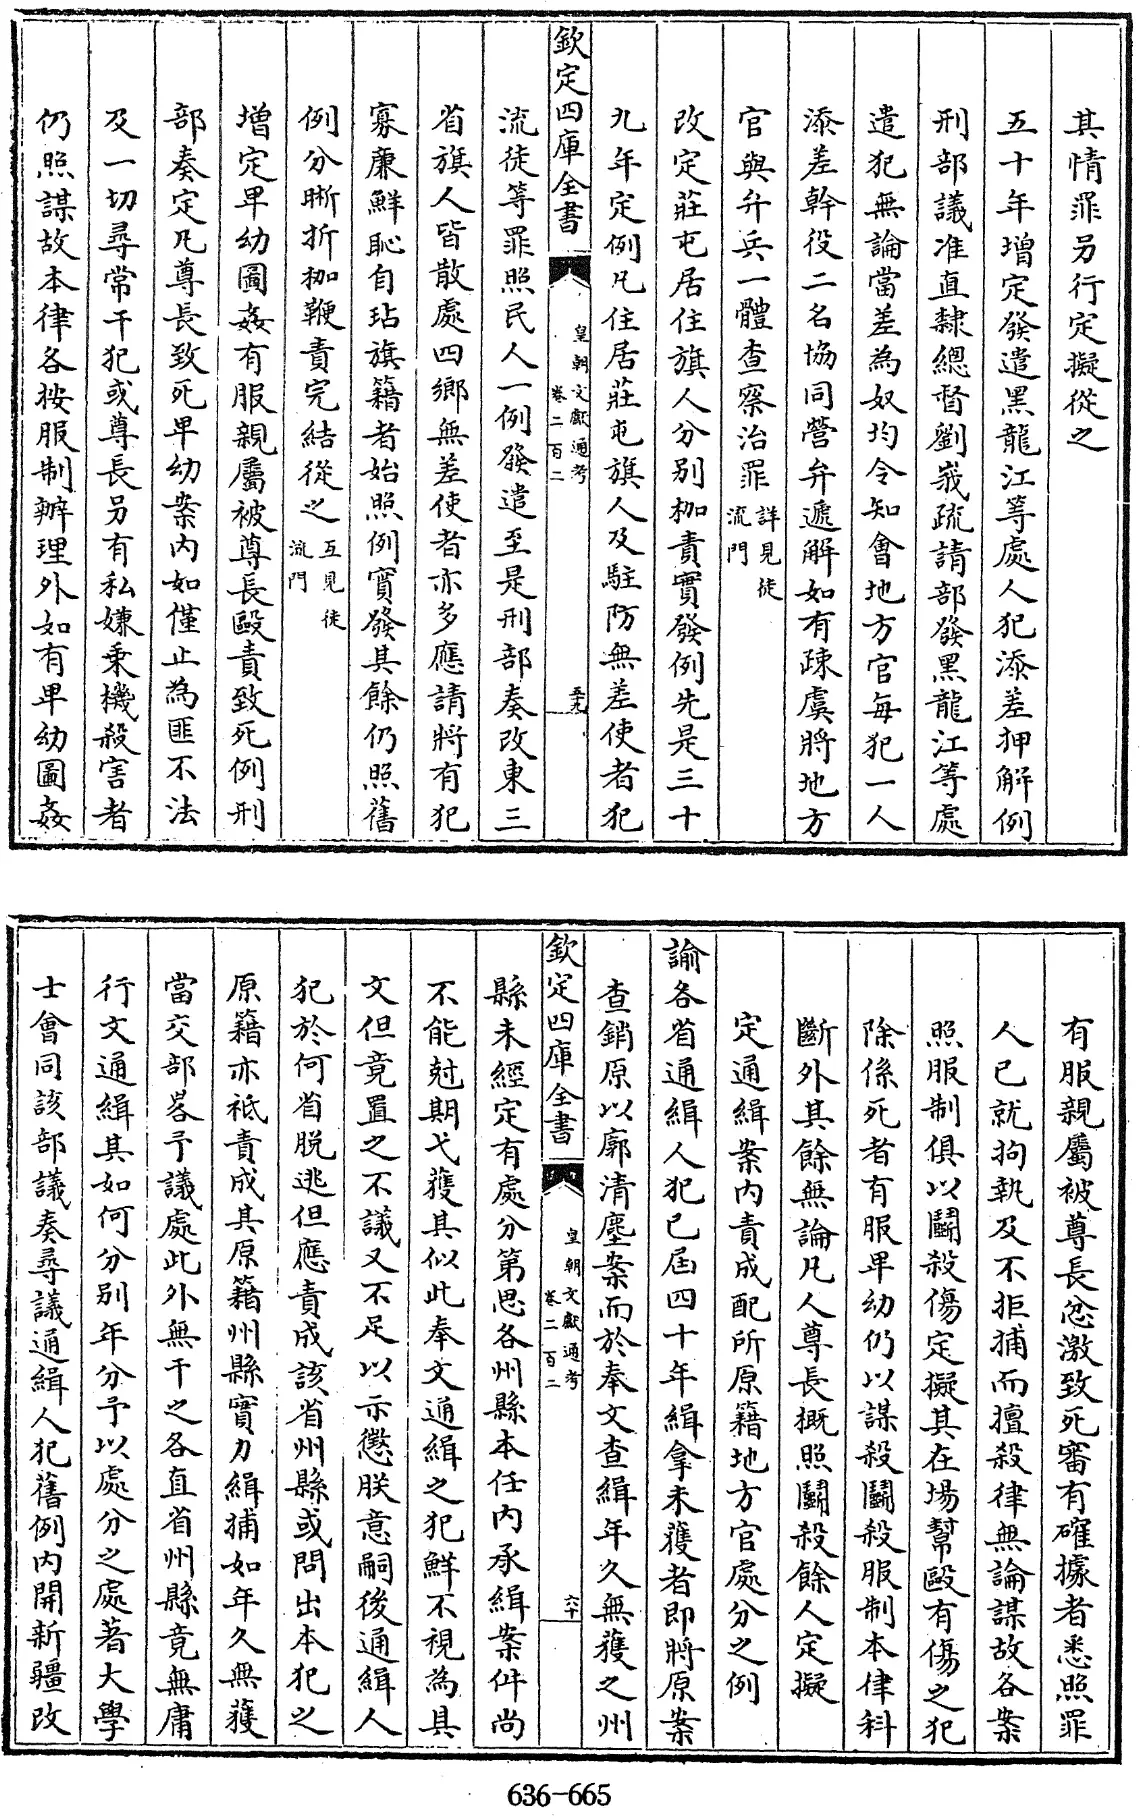 其情罪另行定擬從之
五十年增定發遣黑龍江等處人犯添差狎解例
刑部議准直隸總督劉峩疏請部發黑龍江等處
遣犯無論當差為奴均令知會地方官每犯一人
添差幹役二名協同營弁遞解如有疎虞將地方
官與弁兵一體查察治罪詳見徒
流門
改定莊屯居住旗人分別枷責實發例先是三十
九年定例凡住居莊屯旗人及駐防無差使者犯
欽定四庫全書
皇朝文獻通考
卷二百二
五九
流徒等罪照民人一例發遣至是刑部奏改東三
省旗人皆散處四鄉無差使者亦多應請將有犯
寡廉鮮恥自玷旗籍者始照例實發其餘仍照舊
例分晰折枷鞭責完結從之互見徒
流門
增定卑幼圖姦有服親屬被尊長毆責致死例刑
部奏定凡尊長致死卑幼案內如僅止為匪不法
及一切尋常干犯或尊長另有私嫌乗機殺害者
仍照謀故本律各按服制辦理外如有卑幼圖姦
有服親屬被尊長忿激致死審有確據者悉照罪
人已就拘執及不拒捕而擅殺律無論謀故各案
照服制俱以鬭殺傷定擬其在場幫毆有傷之犯
除係死者有服卑幼仍以謀殺鬭殺服制本律科
斷外其餘無論凡人尊長概照鬭殺餘人定擬
定通緝案內責成配所原籍地方官處分之例
諭各省通緝人犯已屆四十年緝拿未獲者即將原案
查銷原以廓清塵案而於奉文查緝年久無獲之州
欽定四庫全書
皇朝文獻通考
卷二百二
六十
縣未經定有處分第思各州縣本任內承緝案件尚
不能尅期弋獲其似此奉文通緝之犯鮮不視為具
文但竟置之不議又不足以示懲朕意嗣後通緝人
犯於何省脫逃但應責成該省州縣或問出本犯之
原籍亦祗責成其原籍州縣實力緝捕如年久無獲
當交部畧予議處此外無干之各直省州縣竟無庸
行文通緝其如何分別年分予以處分之處著大學
士會同該部議奏尋議通緝人犯舊例內開新疆改
636-665